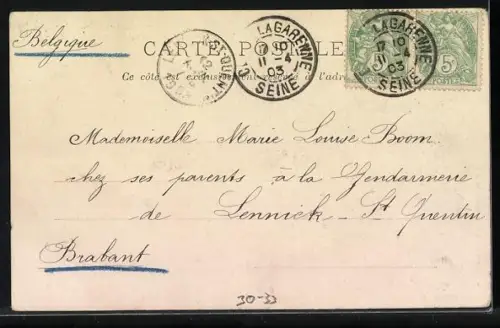 Belgique
CARTE POSTALE
Ce côté est exclusivement réservé à l'adresse
LA GARENNE
17 10
11 - 4
03
SEINE
LA GARENNE
17 10
11 - 4
03
SEINE
5c
Mademoiselle Marie Louise Boom
chez ses parents à la Gendarmerie
de Lennick - St Quentin
Brabant
30-33